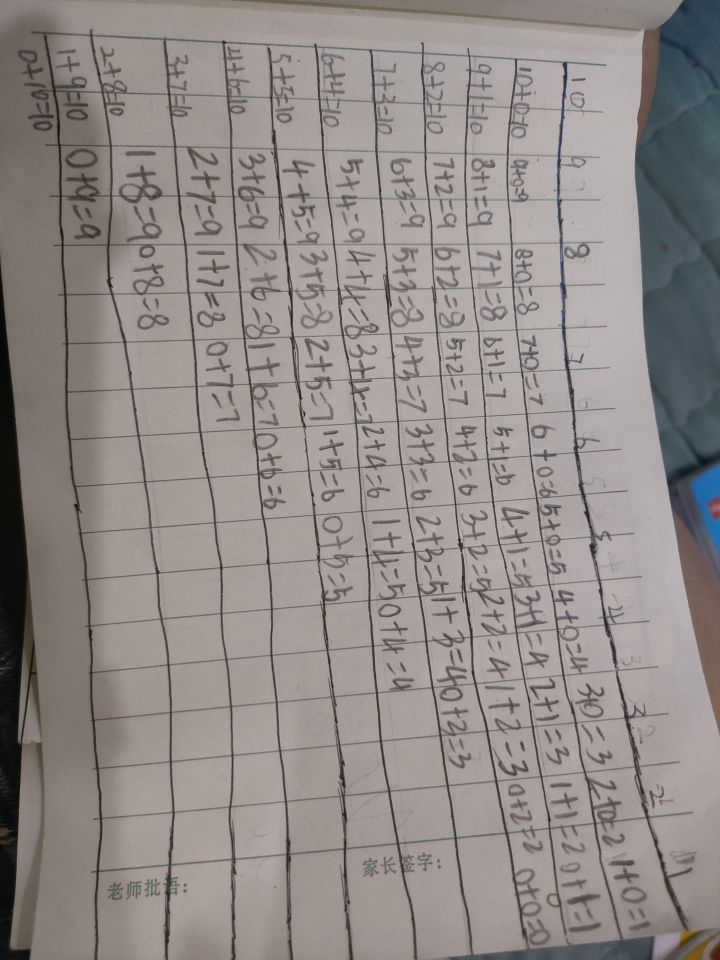 10 9 8 7 6 5 4 3 2 1
10+0=10 9+0=9 8+0=8 7+0=7 6+0=6 5+0=5 4+0=4 3+0=3 2+0=2 1+0=1
9+1=10 8+1=9 7+1=8 6+1=7 5+1=6 4+1=5 3+1=4 2+1=3 1+1=2 0+1=1
8+2=10 7+2=9 6+2=8 5+2=7 4+2=6 3+2=5 2+2=4 1+2=3 0+2=2 0+0=0
7+3=10 6+3=9 5+3=8 4+3=7 3+3=6 2+3=5 1+3=4 0+3=3
6+4=10 5+4=9 4+4=8 3+4=7 2+4=6 1+4=5 0+4=4
5+5=10 4+5=9 3+5=8 2+5=7 1+5=6 0+5=5
4+6=10 3+6=9 2+6=8 1+6=7 0+6=6
3+7=10 2+7=9 1+7=8 0+7=7
2+8=10 1+8=9 0+8=8
1+9=10 0+9=9
0+10=10
家长签字：
老师批语：